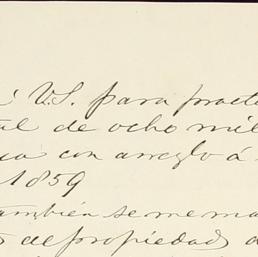 á V.S. para practi
tal de ocho mil
cia con arreglo á
1859
también se me ma
s de propiedad a